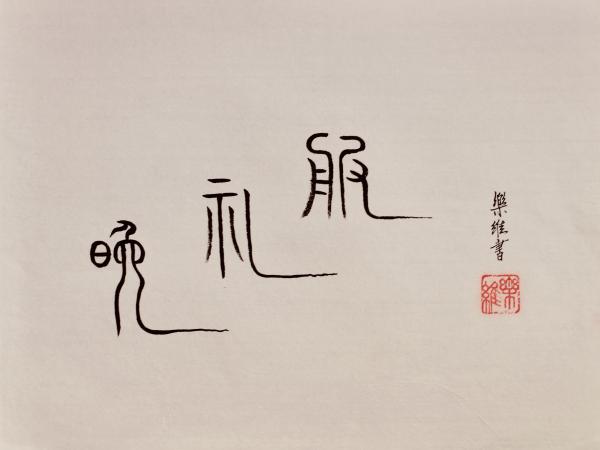 晚礼服
樂維書
樂維